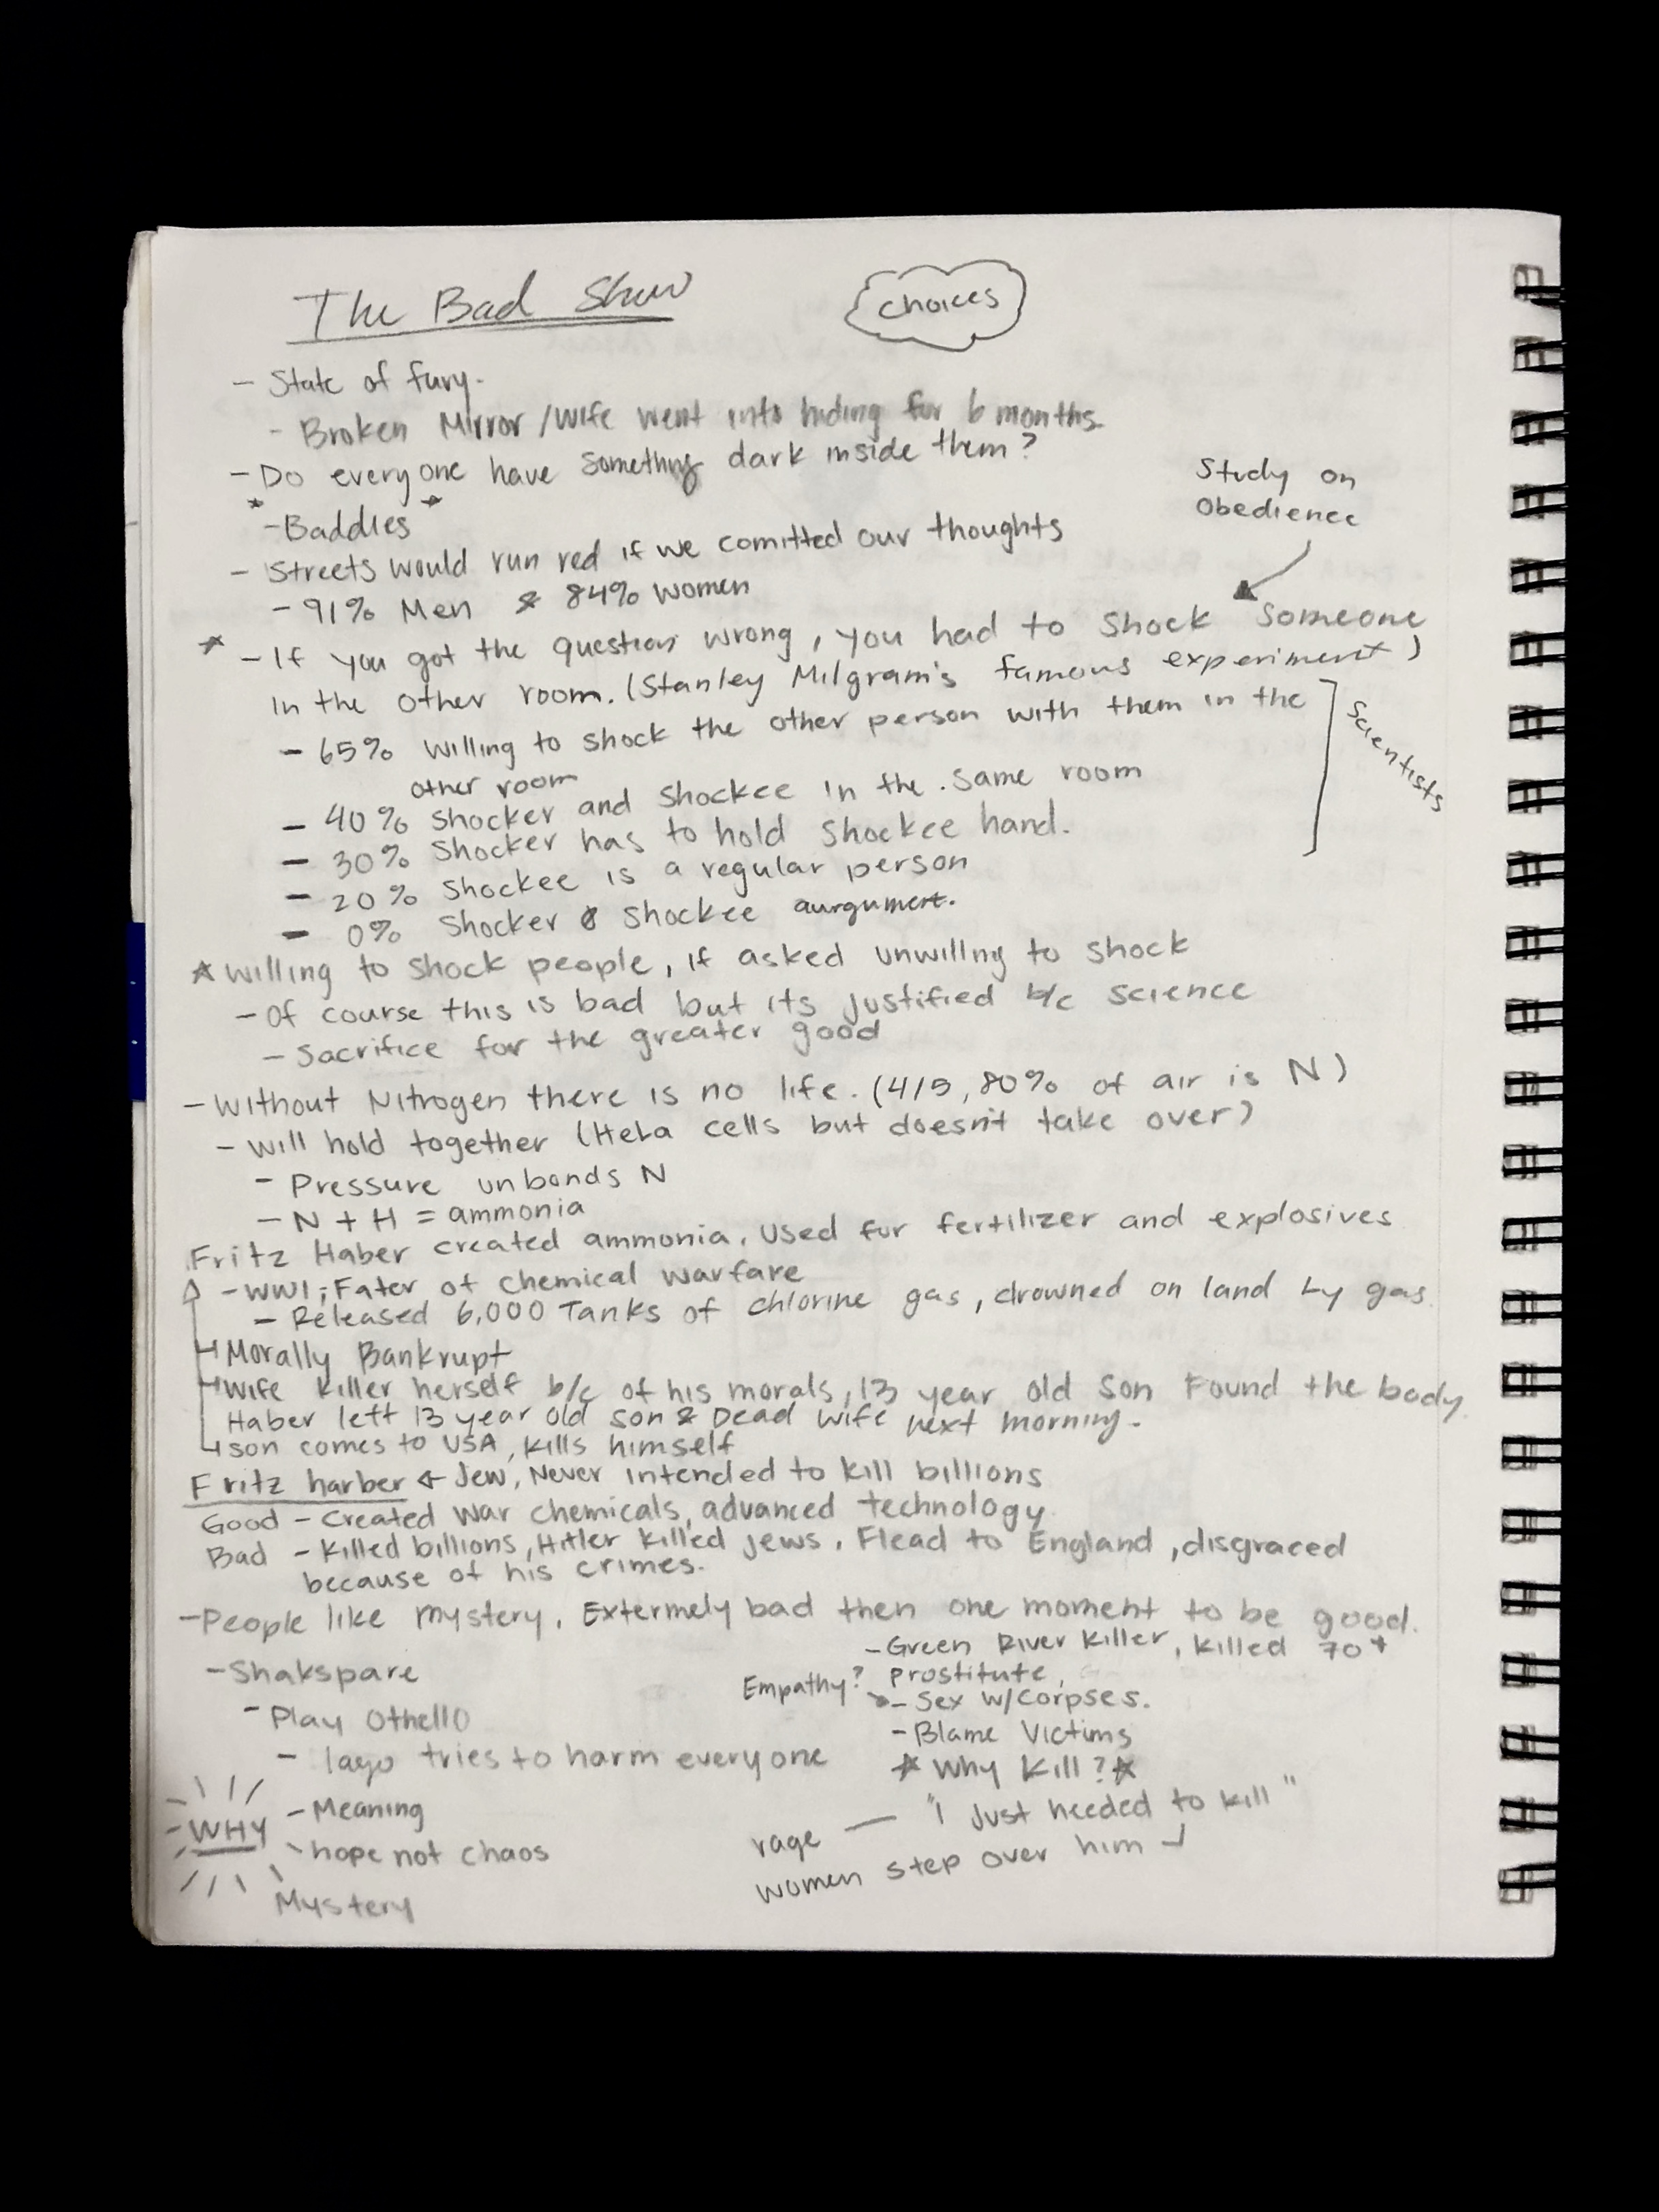 The Bad Show
choices
- State of fury.
- Broken Mirror/Wife went into hiding for 6 months.
- Do everyone have something dark inside them?
* - Baddies *
- Streets would run red if we comitted our thoughts
- 91% Men & 84% women
Study on
Obedience
* - If you got the question wrong, you had to shock someone
in the other room. (Stanley Milgram's famous experiment)
- 65% willing to shock the other person with them in the
other room
- 40% shocker and shockee in the same room
- 30% Shocker has to hold shockee hand.
- 20% Shockee is a regular person
- 0% Shocker & shockee aurgument.
Scientists
* willing to shock people, if asked unwillng to shock
- Of course this is bad but its justified b/c science
- Sacrifice for the greater good
- Without Nitrogen there is no life. (4/5, 80% of air is N)
- will hold together (HeLa cells but doesn't take over)
- Pressure unbonds N
- N + H = ammonia
Fritz Haber created ammonia. Used for fertilizer and explosives
- WW1; Fater of chemical warfare
- Released 6,000 Tanks of chlorine gas, drowned on land by gas
Morally Bankrupt
Wife killer herself b/c of his morals, 13 year old son Found the body
Haber left 13 year old son & Dead wife next morning.
son comes to USA, kills himself
Fritz harber ← Jew, Never intended to kill billions
Good - Created war chemicals, advanced technology
Bad - Killed billions, Hitler killed jews. Flead to England, disgraced
because of his crimes.
- People like mystery. Extermely bad then one moment to be good.
- Green River Killer, killed 70+
prostitute,
Empathy?
- Sex w/corpses.
- Blame Victims
* Why Kill? *
- "I just needed to kill"
rage
women step over him
- Shakspare
- Play Othello
- Iago tries to harm everyone
WHY
- Meaning
- hope not chaos
Mystery